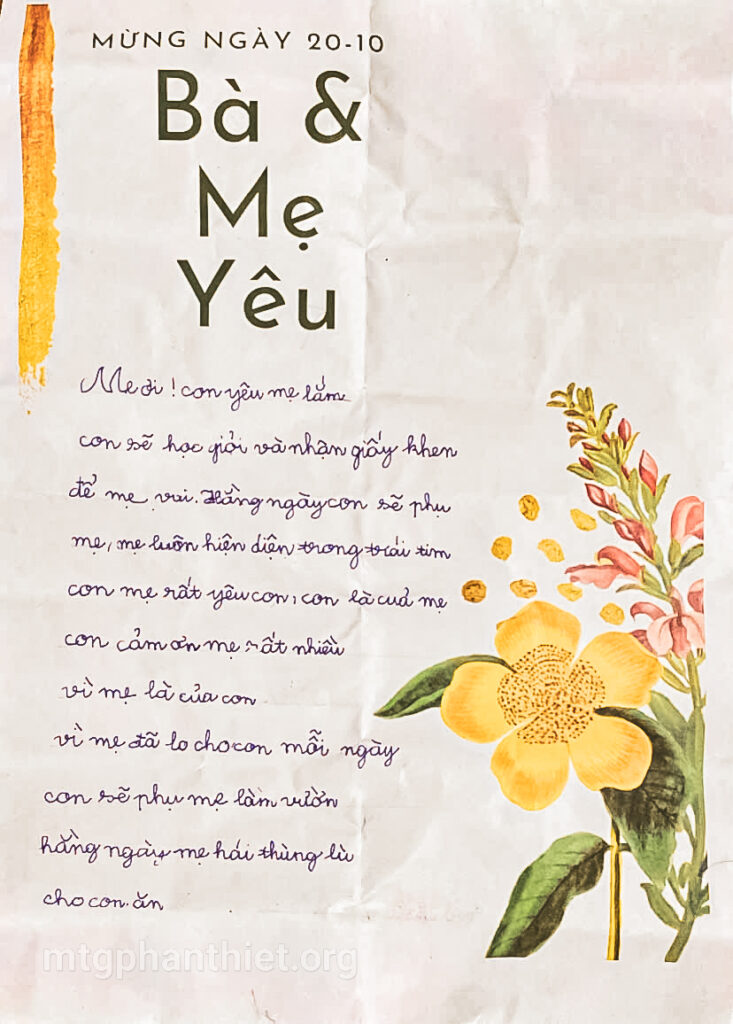 MỪNG NGÀY 20-10
Bà &
Mẹ
Yêu
Mẹ ơi! con yêu mẹ lắm
con sẽ học giỏi và nhận giấy khen
để mẹ vui. Hằng ngày con sẽ phụ
mẹ, mẹ luôn hiện diện trong trái tim
con mẹ rất yêu con, con là cuả mẹ
con cảm ơn mẹ rất nhiều
vì mẹ là của con
vì mẹ đã lo cho con mỗi ngày
con sẽ phụ mẹ làm vườn
hằng ngày mẹ hái thùng lù
cho con ăn
mtgphanthiet.org